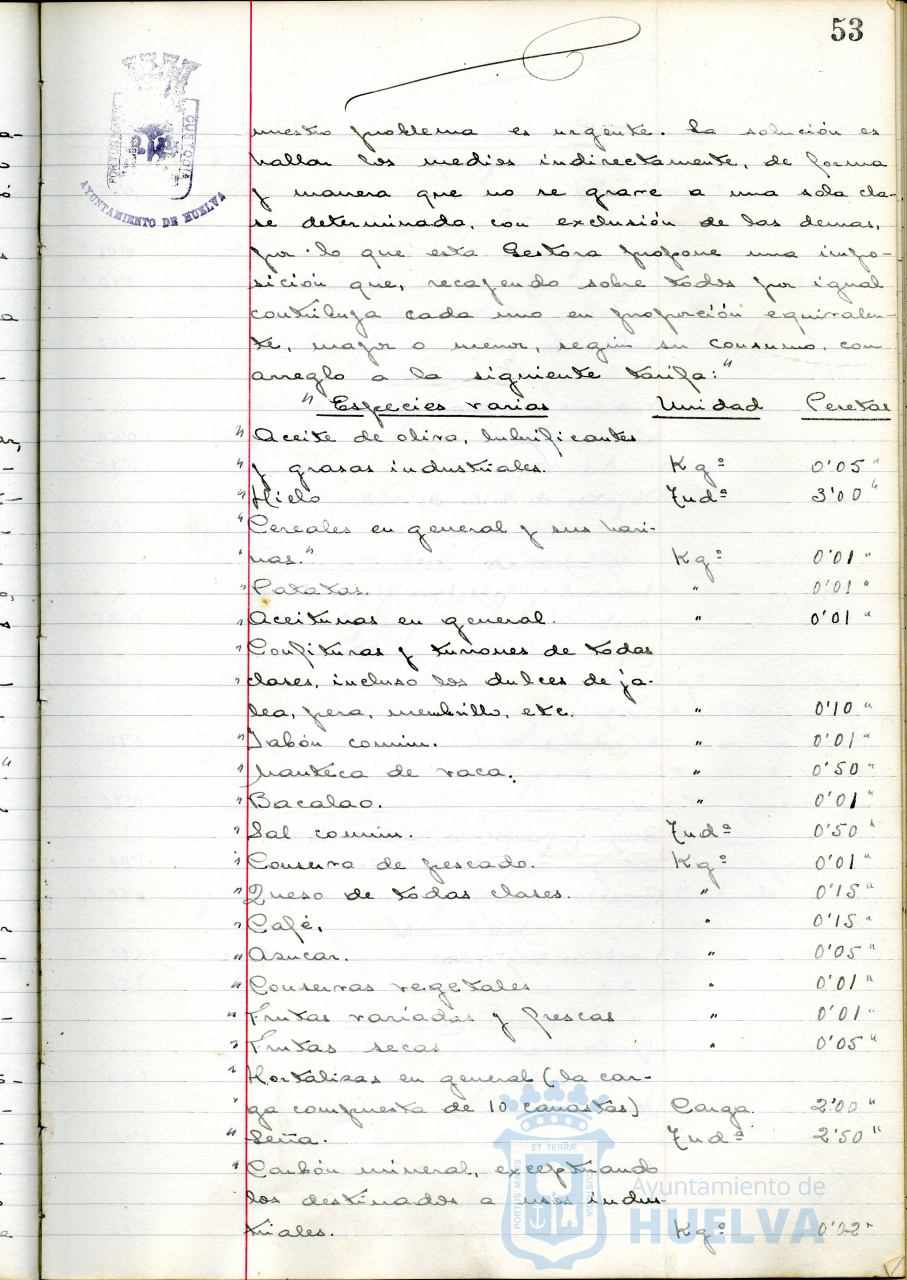 53
AYUNTAMIENTO DE HUELVA
nuestro problema es urgente. La solución es
hallar los medios indirectamente, de forma
y manera que no se grave a una sola cla-
se determinada, con exclusión de las demas,
por lo que esta Gestora propone una impo-
sición que, recayendo sobre todos por igual
contribuya cada uno en proporción equivalen-
te, mayor o menor, según su consumo, con
arreglo a la siguiente tarifa:"
" Especies varias Unidad Pesetas
" Aceite de oliva, lubrificantes
" y grasas industriales. Kgº 0'05 "
" Hielo Tndª 3'00 "
" Cereales en general y sus hari-
" nas." Kgº 0'01 "
" Patatas. " 0'01 "
" Aceitunas en general. " 0'01 "
" Confituras y turrones de todas
" clases, incluso los dulces de ja-
" lea, pera, membrillo, etc. " 0'10 "
" Jabón comun. " 0'01 "
" Manteca de vaca. " 0'50 "
" Bacalao. " 0'01 "
" Sal comun. Tndª 0'50 "
" Conserva de pescado. Kgº 0'01 "
" Queso de todas clases. " 0'15 "
" Café. " 0'15 "
" Azucar. " 0'05 "
" Conservas vegetales " 0'01 "
" Frutas variadas y frescas " 0'01 "
" Frutas secas " 0'05 "
" Hortalizas en general (la car-
" ga compuesta de 10 canastas) Carga. 2'00 "
" Leña. Tndª 2'50 "
" Carbón mineral, exceptuando
los destinados a usos indus-
triales. Kgº 0'02 "
ET TERRÆ
PORTUS MARIS
CUSTODIA
Ayuntamiento de
HUELVA